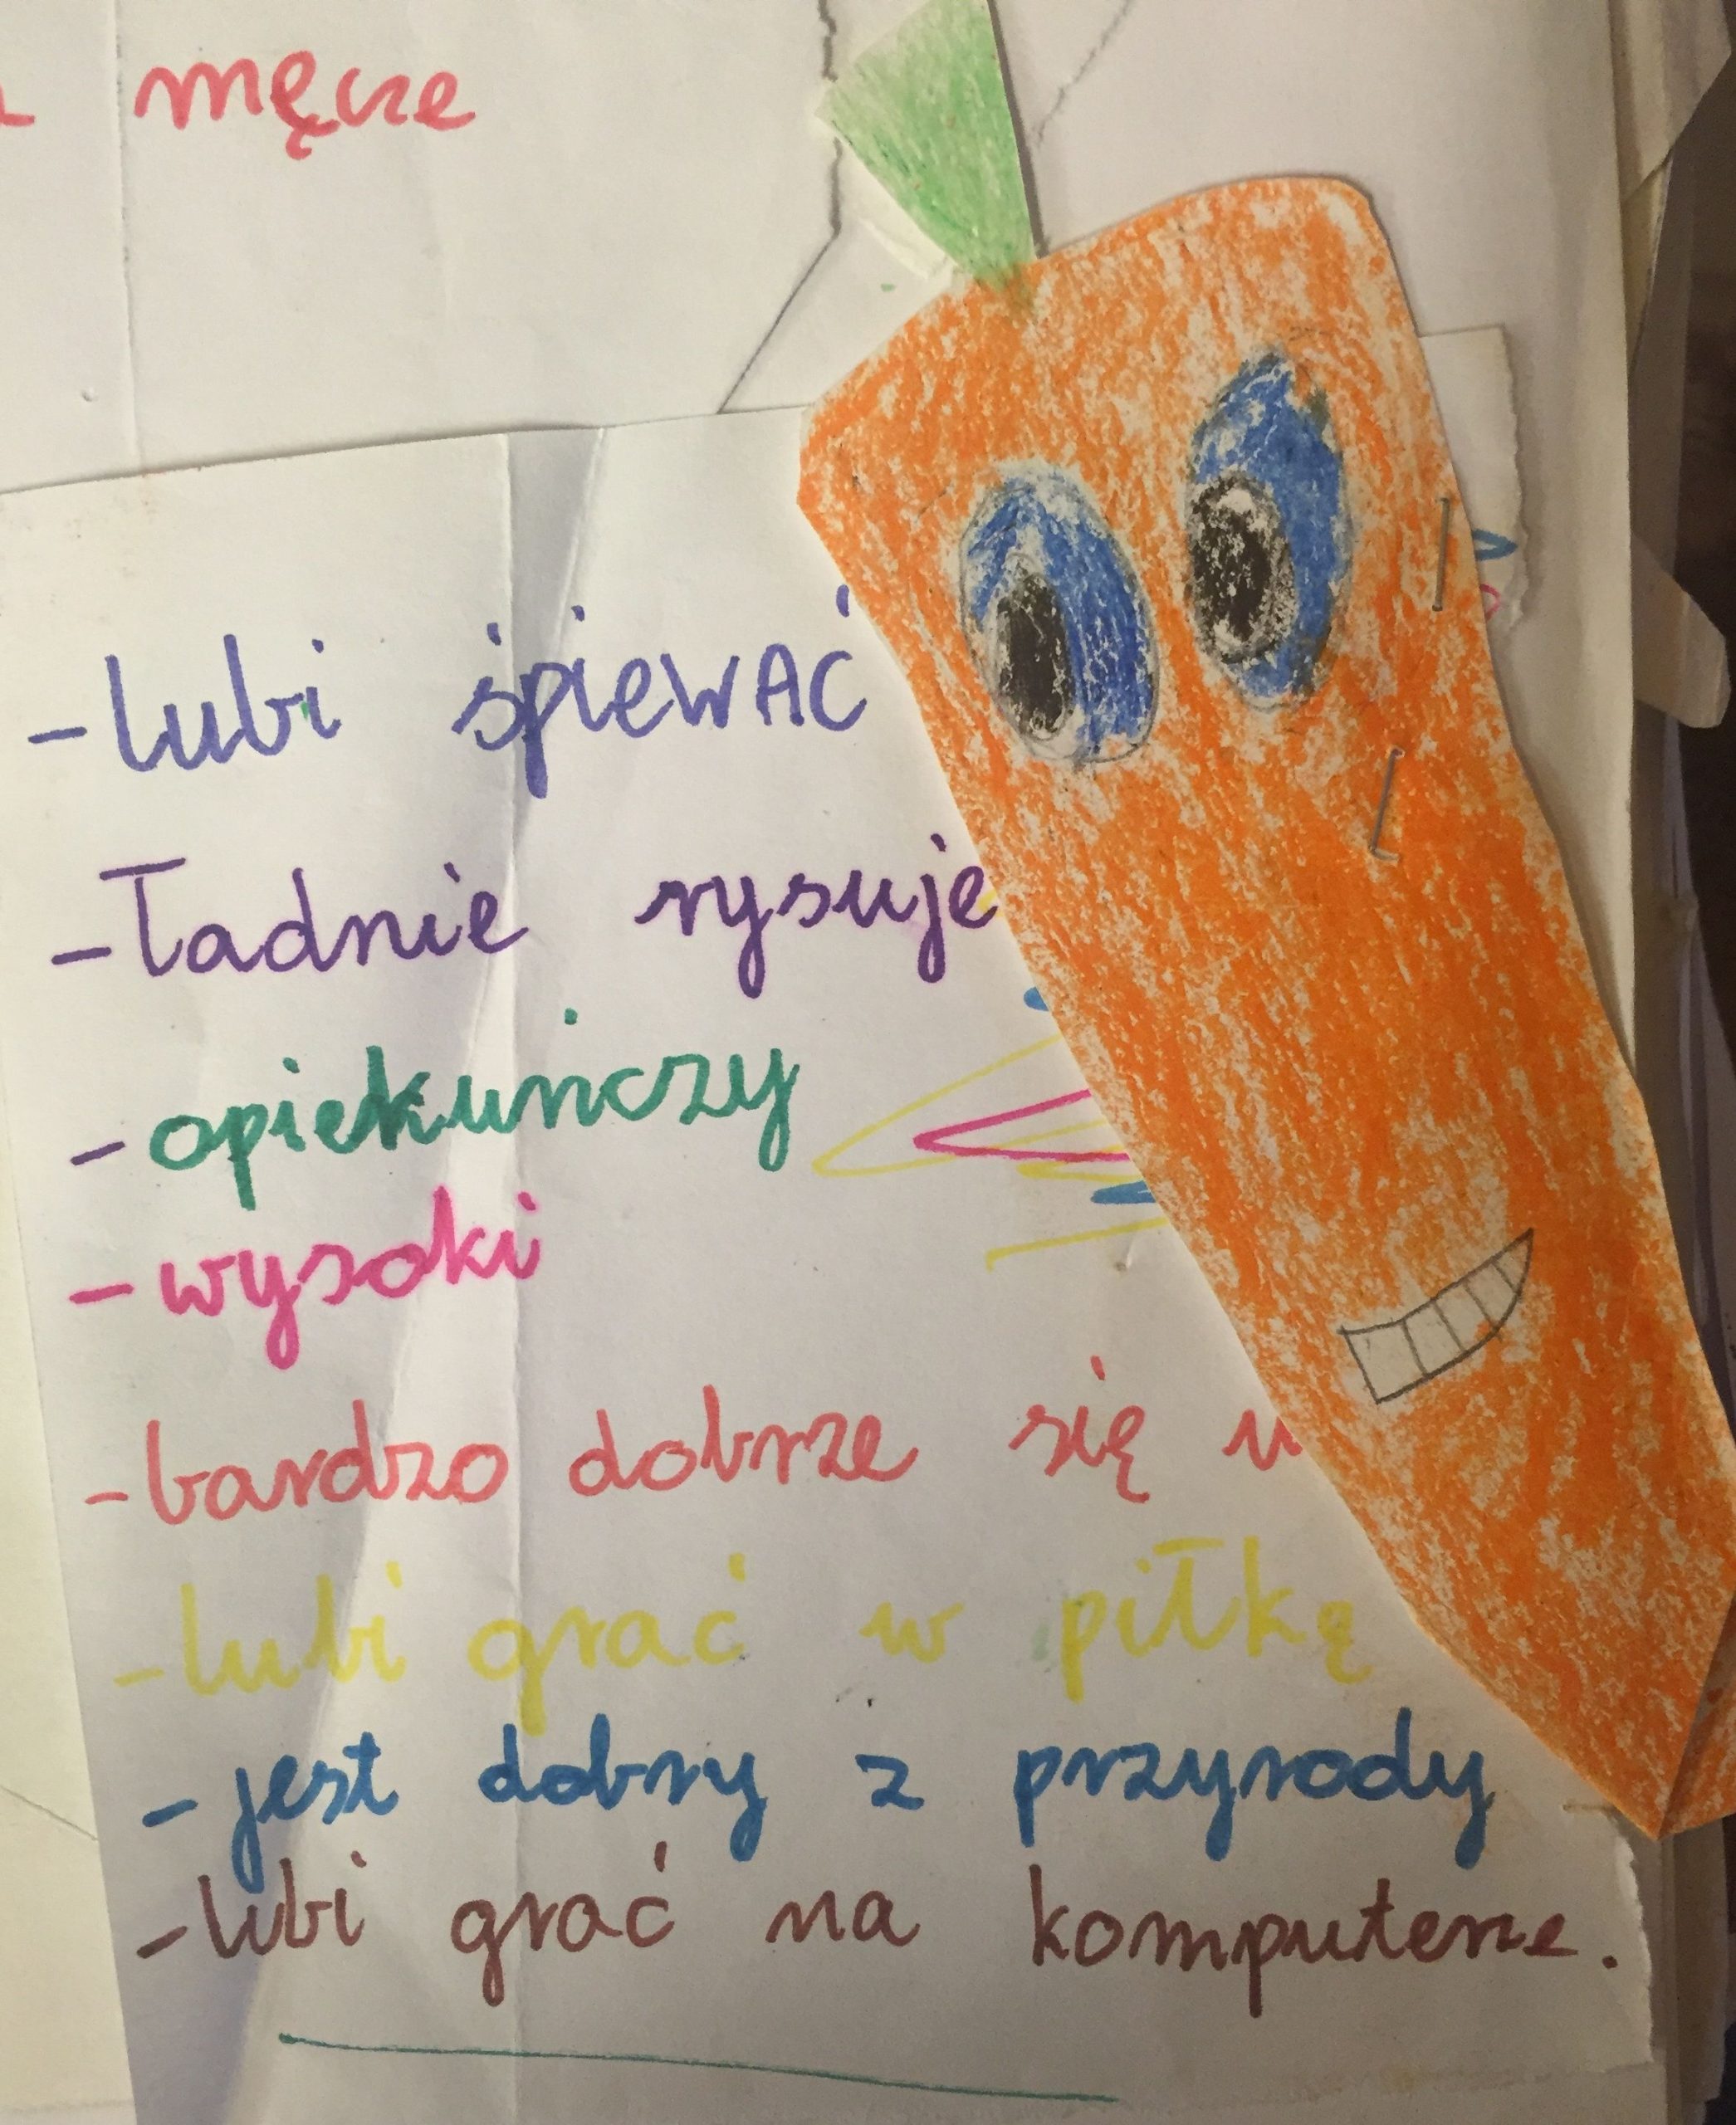 męcze
- lubi śpiewAć
- Ładnie rysuje
- opiekuńczy
- wysoki
- bardzo dobrze się
- lubi grać w piłkę
- jest dobry z przyrody
- lubi grać na komputerze.